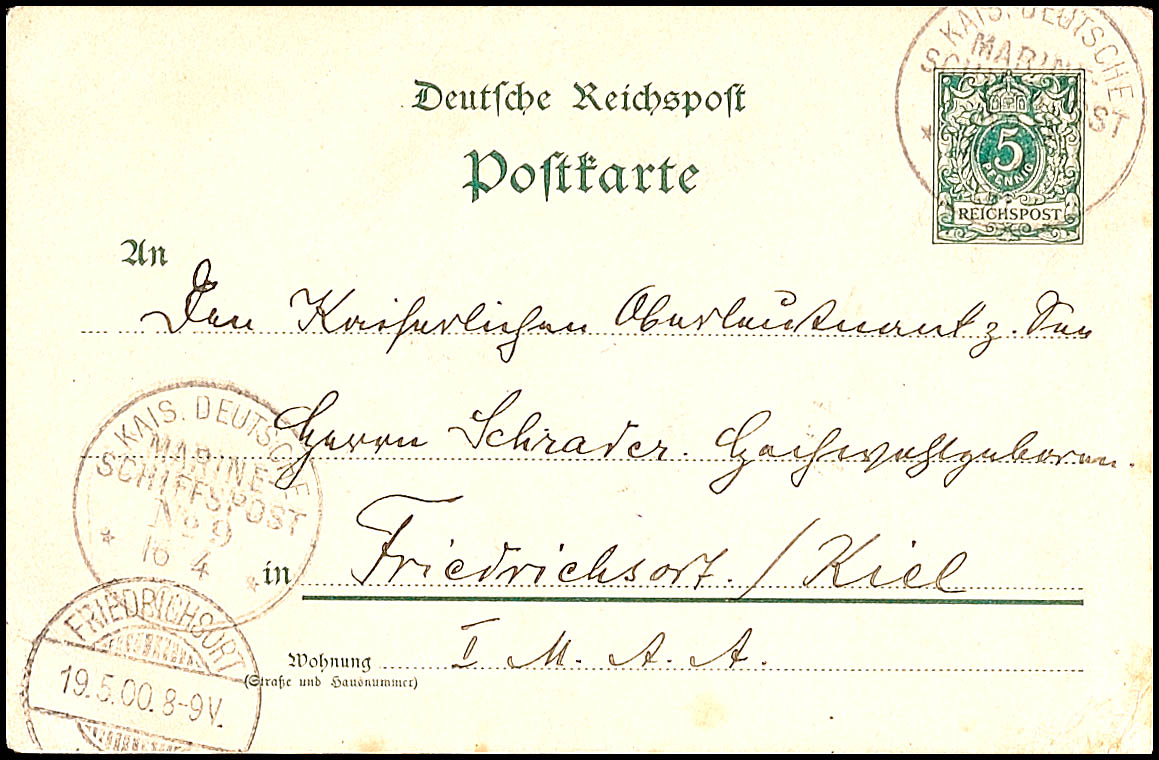 KAIS. DEUTSCHE
MARINE-
Deutsche Reichspost
Postkarte
5
PFENNIG
REICHSPOST
An
Den Kaiserlichen Oberleutnant z. See
Herrn Schrader. Hochwohlgeboren.
KAIS. DEUTSCHE
MARINE-
SCHIFFSPOST
No 9
16 4
in Friedrichsort. / Kiel
Wohnung I M. A. A.
(Straße und Hausnummer)
FRIEDRICHSORT
19.5.00.8-9V.